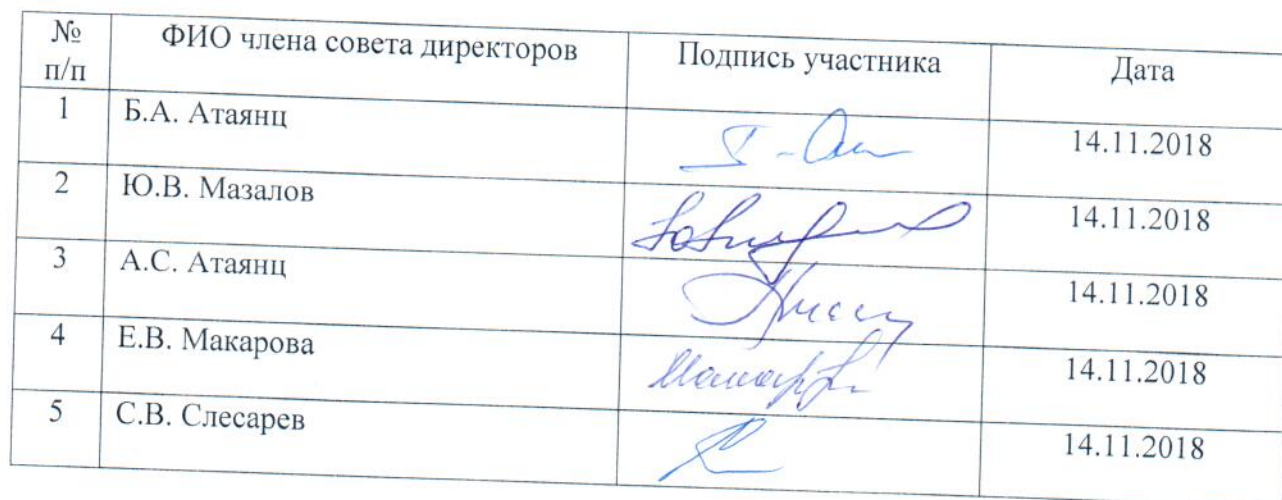 № п/п ФИО члена совета директоров Подпись участника Дата
1 Б.А. Атаянц 14.11.2018
2 Ю.В. Мазалов 14.11.2018
3 А.С. Атаянц 14.11.2018
4 Е.В. Макарова 14.11.2018
5 С.В. Слесарев 14.11.2018